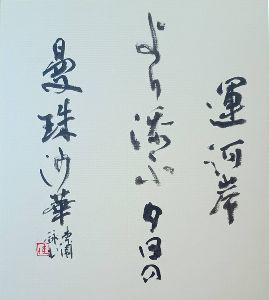 運河岸
より添ふ夕日の
曼珠沙華